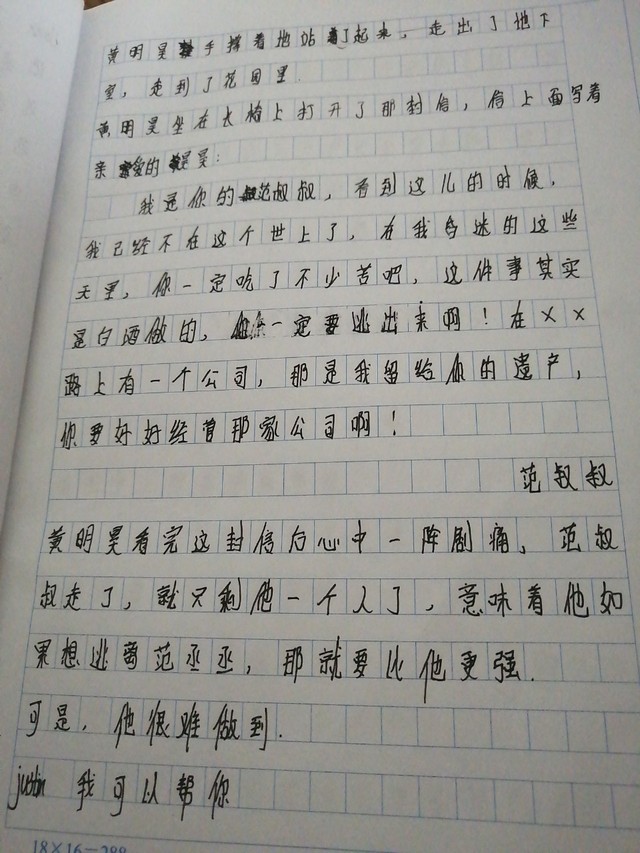 黄明昊手撑着地站了起来，走出了地下
室，走到了花园里.
黄明昊坐在长椅上打开了那封信，信上面写着
亲爱的昊昊：
我是你的范叔叔，看到这儿的时候，
我已经不在这个世上了，在我昏迷的这些
天里，你一定吃了不少苦吧，这件事其实
是白酒做的，你一定要逃出来啊！在××
路上有一个公司，那是我留给你的遗产，
你要好好经营那家公司啊！
范叔叔
黄明昊看完这封信后心中一阵剧痛，范叔
叔走了，就只剩他一个人了，意味着他如
果想逃离范丞丞，那就要比他更强.
可是，他很难做到.
justin 我可以帮你
18×16=288